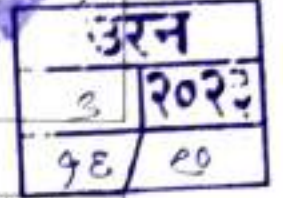 उरन
३ २०२२
१६/ १७